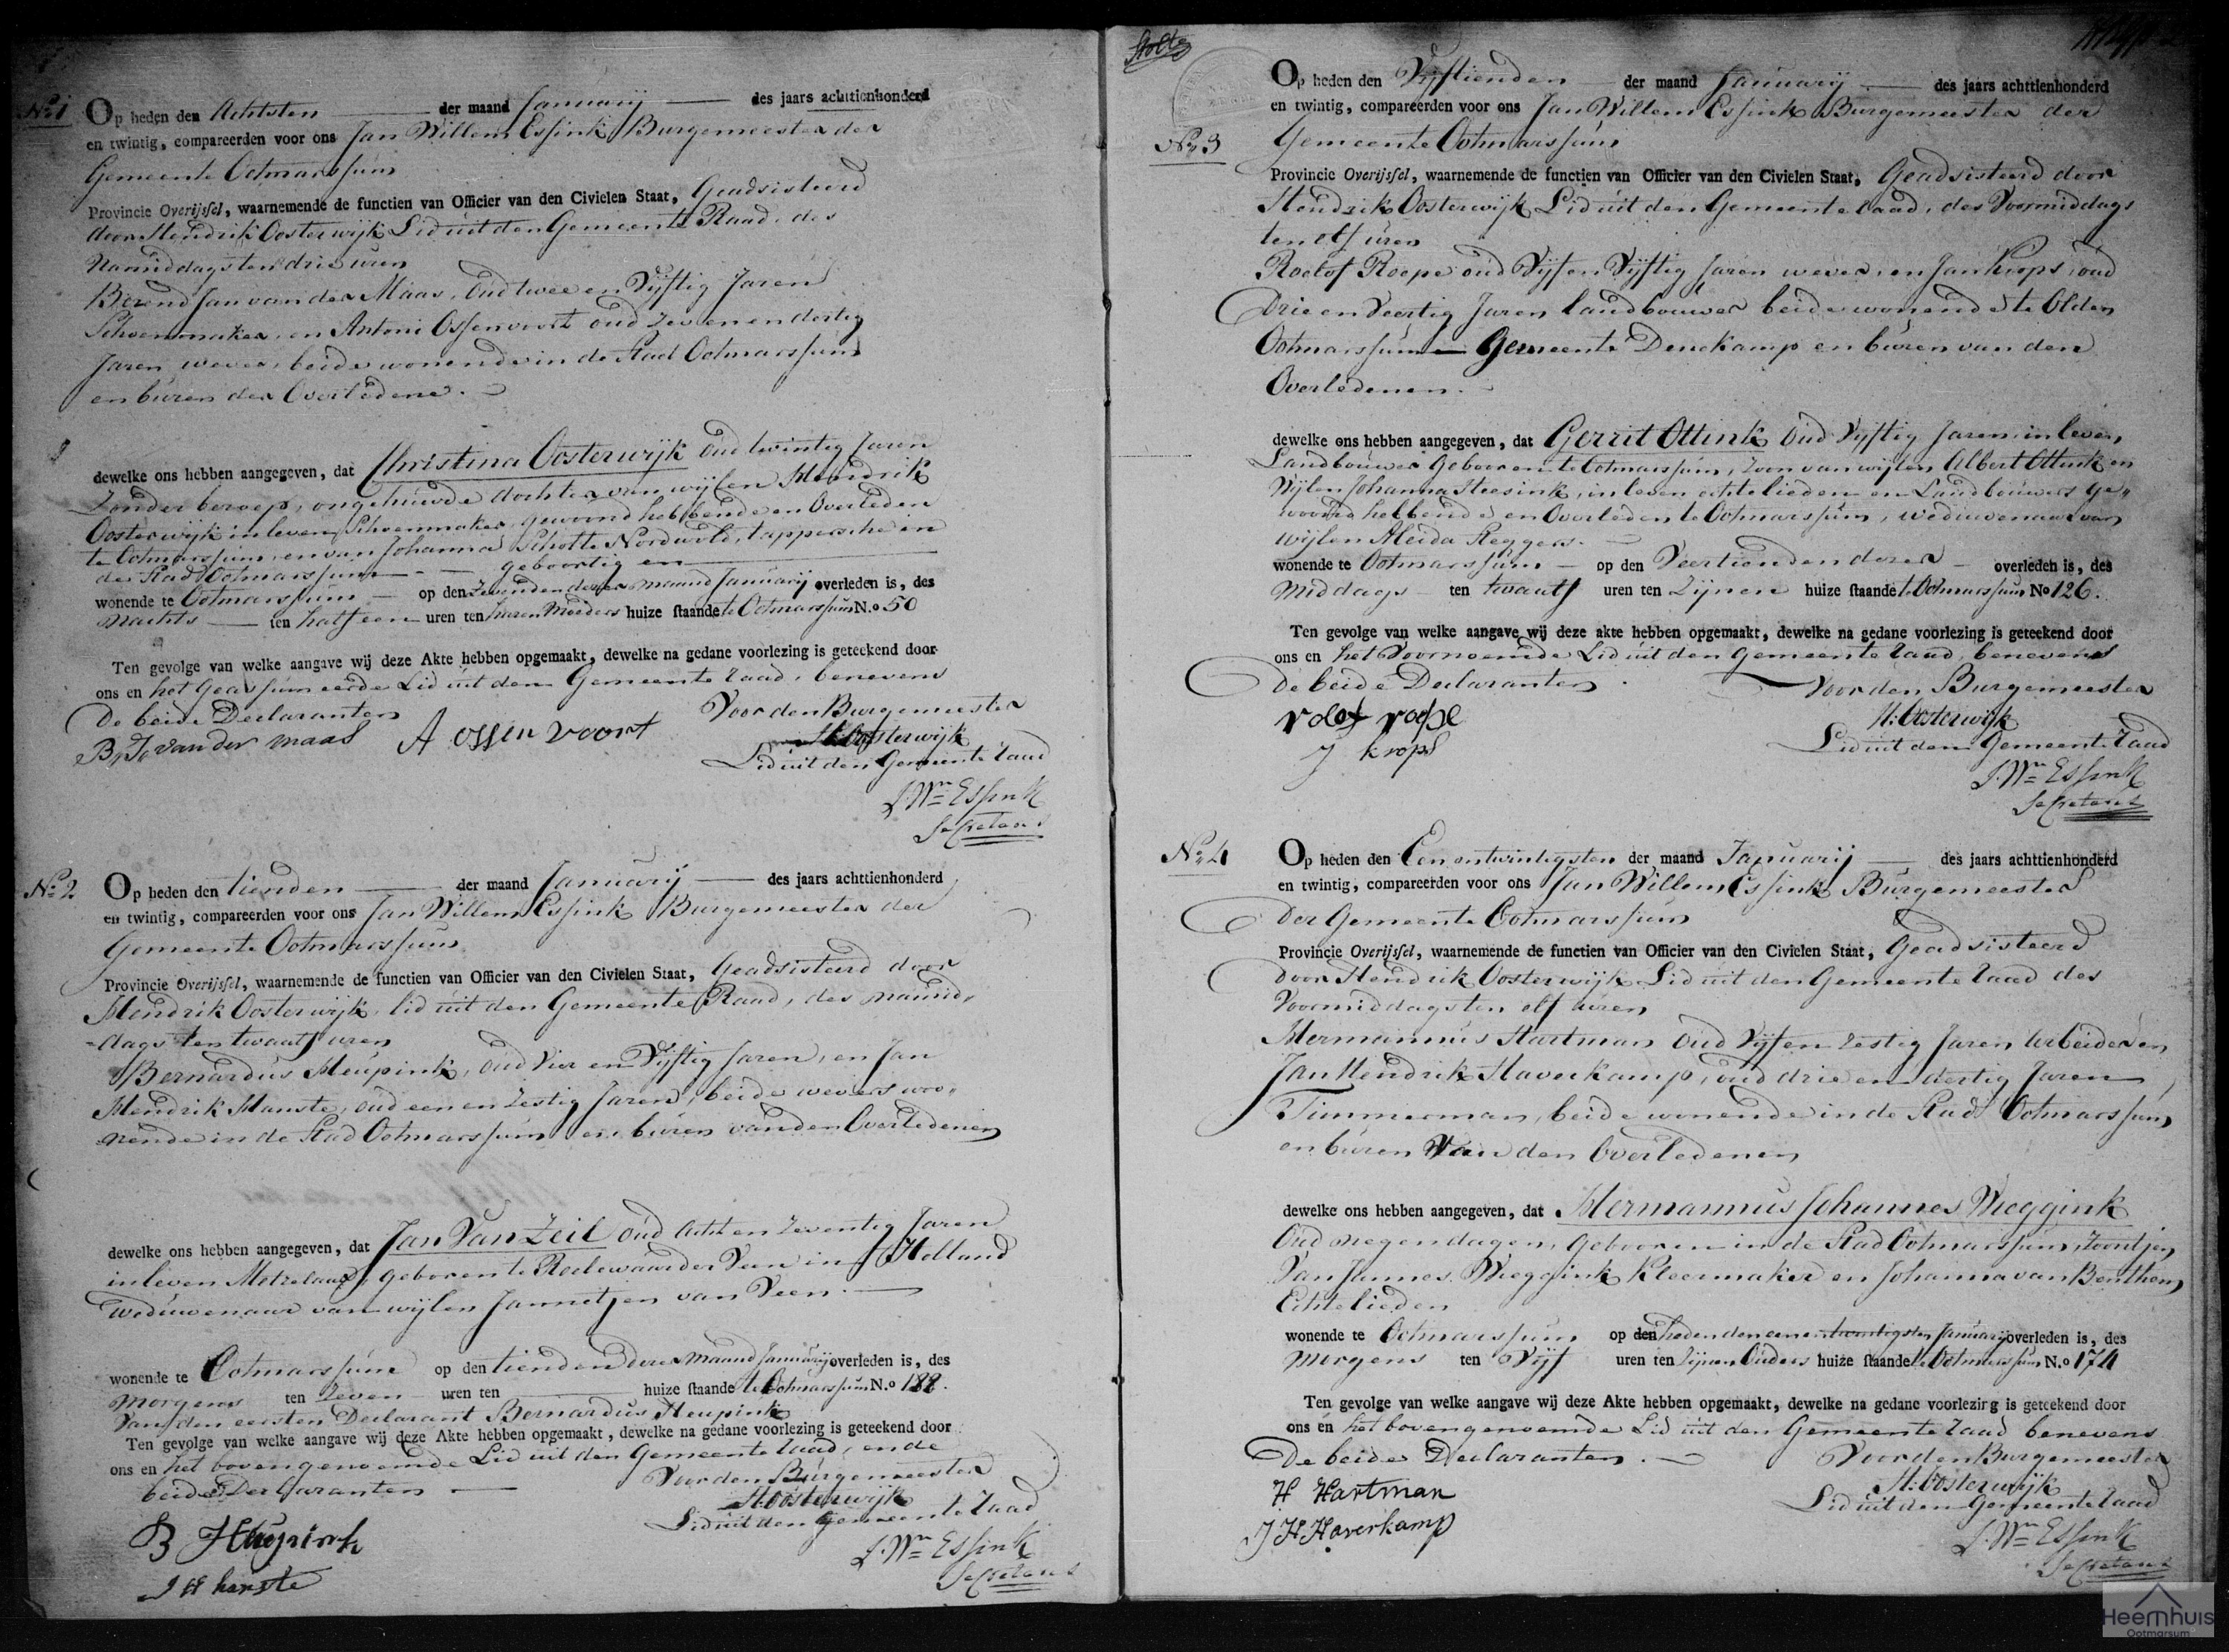 No 1
Op heden den Achtsten der maand Januarij des jaars achttienhonderd
en twintig, compareerden voor ons Jan Willem Essink Burgemeester der
Gemeente Ootmarssum
Provincie Overijssel, waarnemende de functien van Officier van den Civielen Staat, Geadsisteerd
door Hendrik Oosterwijk Lid uit den Gemeente Raad, des
Namiddags ten drie uren
Berend Jan van der Maas, Oud twee en Vijftig Jaren
Schoenmaker, en Antoni Ossenvoort oud zeven en dertig
Jaren wever, beide wonende in de Stad Ootmarssum
en buren der Overledene.
dewelke ons hebben aangegeven, dat Christina Oosterwijk Oud twintig Jaren
Zonder beroep, ongehuwde dochter van wijlen Hendrik
Oosterwijk in leven Schoenmaker, gewoond hebbende en Overleden
te Ootmarssum, en van Johanna Scholte Nordwold, tappersche en
de Stad Ootmarssum geboortig en
wonende te Ootmarssum op den Zevenden dezer maand Januarij overleden is, des
Nachts ten half een uren ten haren Moeders huize staande te Ootmarssum N.o 50
Ten gevolge van welke aangave wij deze Akte hebben opgemaakt, dewelke na gedane voorlezing is geteekend door
ons en het Geassumeerde Lid uit den Gemeente raad, benevens
De beide Declaranten
Voor den Burgemeester
B, J, van der maas A ossenvoort
H. Oosterwijk
Lid uit den Gemeente raad
J. Wm Essink
Secretaris
No 2
Op heden den tienden der maand Januarij des jaars achttienhonderd
en twintig, compareerden voor ons Jan Willem Essink Burgemeester der
Gemeente Ootmarssum
Provincie Overijssel, waarnemende de functien van Officier van den Civielen Staat, Geadsisteerd door
Hendrik Oosterwijk, lid uit den Gemeente Raad, des namid„
-dags ten twaalf uren
Bernardus Heupink, Oud Vier en Vijftig Jaren, en Jan
Hendrik Hanste, oud een en Zestig Jaren, beide wevers woo„
nende in de Stad Ootmarssum en buren van den Overledenen
dewelke ons hebben aangegeven, dat Jan Van Zeil oud Acht en Zeventig Jaren
in leven Metzelaar, geboren te Reelewaarder Veen in Holland
Weduwenaar van wijlen Jannetjen van Veen.
wonende te Ootmarssum op den tienden dezer maand Januarij overleden is, des
morgens ten Zeven uren ten huize staande te Ootmarssum N.o 188.
Van den eersten Declarant Bernardus Heupink
Ten gevolge van welke aangave wij deze Akte hebben opgemaakt, dewelke na gedane voorlezing is geteekend door
ons en het bovengenoemde Lid uit den Gemeente raad, en de
beide Declaranten
Voor den Burgemeester
H. Oosterwijk
Lid uit den Gemeente raad
B Heupink
J H hanste
J. Wm Essink
Secretaris
No 3
Op heden den Vijftienden der maand Januarij des jaars achttienhonderd
en twintig, compareerden voor ons Jan Willem Essink Burgemeester der
Gemeente Ootmarssum
Provincie Overijssel, waarnemende de functien van Officier van den Civielen Staat, Geadsisteerd door
Hendrik Oosterwijk Lid uit den Gemeente raad, des Voormiddags
ten elf uren
Roelof Roepe oud Vijf en Vijftig Jaren wever, en Jan Krops, oud
Drie en Veertig Jaren landbouwer beide wonende te Olden
Ootmarssum Gemeente Denekamp en buren van den
Overledenen.
dewelke ons hebben aangegeven, dat Gerrit Ottink Oud Vijftig Jaren, in leven
Landbouwer Gebooren te Ootmarssum, Zoon van wijlen Albert Ottink en
Wijlen Johanna Steesink, in leven echtelieden en Landbouwers ge„
woond hebbende en Overleden te Ootmarssum, weduwenaar van
wijlen Aleida Reggers.
wonende te Ootmarssum op den Veertienden dezer overleden is, des
Middags ten twaalf uren ten Zijnen huize staande te Ootmarssum No 126.
Ten gevolge van welke aangave wij deze akte hebben opgemaakt, dewelke na gedane voorlezing is geteekend door
ons en het Voornoemde Lid uit den Gemeente raad, benevens
De beide Declaranten.
Voor den Burgemeester
rolof roepe
J krops
H. Oosterwijk
Lid uit den Gemeente raad
J. Wm Essink
Secretaris
No 4
Op heden den Een entwintigsten der maand Januarij des jaars achttienhonderd
en twintig, compareerden voor ons Jan Willem Essink Burgemeester
Der Gemeente Ootmarssum
Provincie Overijssel, waarnemende de functien van Officier van den Civielen Staat, Geadsisteerd
door Hendrik Oosterwijk Lid uit den Gemeente raad des
Voormiddags ten elf uren
Hermannus Hartman Oud Vijf en zestig Jaren Arbeider en
Jan Hendrik Haverkamp, oud drie en dertig Jaren
Timmerman, beide wonende in de Stad Ootmarssum
en buren Van den Overledenen
dewelke ons hebben aangegeven, dat Hermannus Johannes Weggink
Oud negen dagen, Gebooren in de Stad Ootmarssum, Zoontjen
Van Jannes Weggink Kleermaker en Johanna van Benthem
Echtelieden
wonende te Ootmarssum op den heden den een entwintigsten Januarij overleden is, des
Morgens ten Vijf uren ten Zijnen Ouders huize staande te Ootmarssum N.o 174
Ten gevolge van welke aangave wij deze Akte hebben opgemaakt, dewelke na gedane voorlezing is geteekend door
ons en het bovengenoemde Lid uit den Gemeente raad benevens
De beide Declaranten.
Voor den Burgemeester
H Hartman
J H Haverkamp
H. Oosterwijk
Lid uit den Gemeente raad
J. Wm Essink
Secretaris
Heemhuis
Ootmarsum